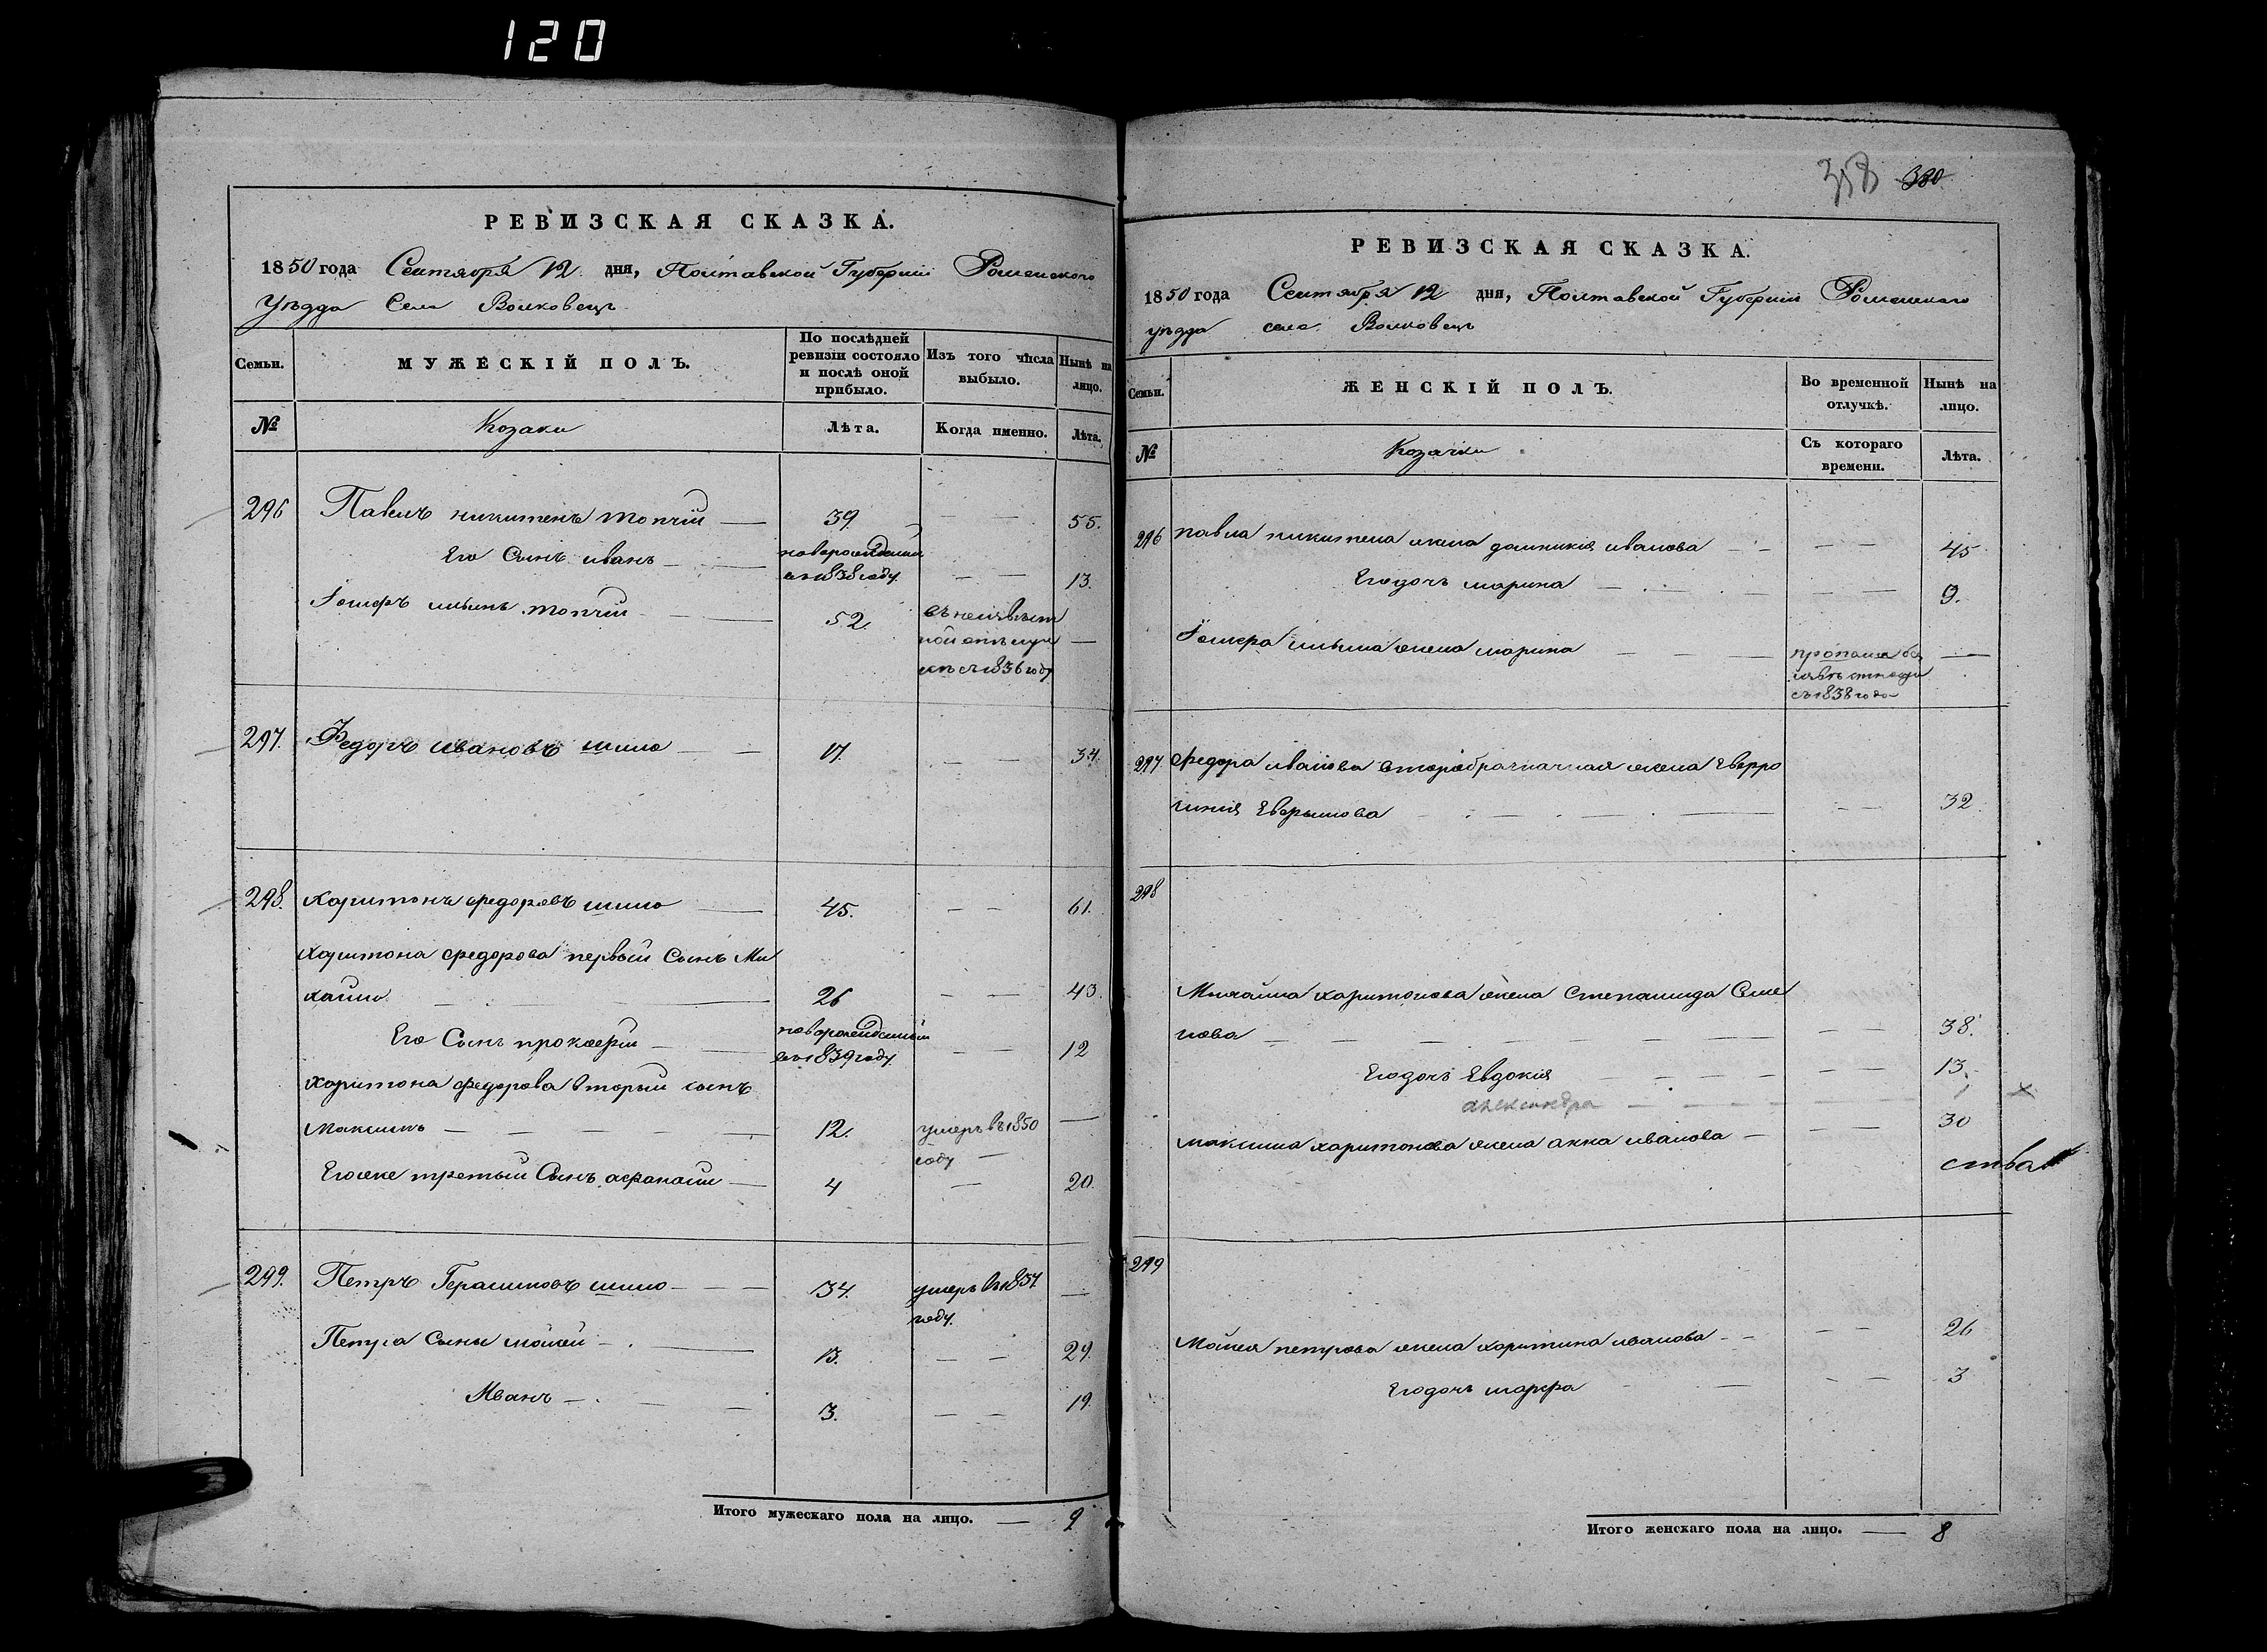 120
РЕВИЗСКАЯ СКАЗКА.
1850 года Сентября 12 дня, Полтавской Губерніи Роменского
Уѣзда Села Волковецъ
Семьи. МУЖЕСКІЙ ПОЛЪ. По послѣдней ревизіи состояло и послѣ оной прибыло. Изъ того числа выбыло. Нынѣ на лицо.
№ Козаки Лѣта. Когда именно. Лѣта.
296 Павелъ никитенъ топчій 39. 55.
Его Сынъ иванъ новорожденный въ 1838 году 13.
Іосифъ ильинъ топчій 52. въ неизвѣстной отлучкѣ съ 1836 году
297. Федоръ ивановъ шило 17. 34.
298. харитонъ федоровъ шило 45. 61.
харитона федорова первый Сынъ Ми
хайло 26 43.
Его Сынъ прокофій новорожденный въ 1839 году 12
харитона федорова вторый сынъ
Максимъ 12. умеръ въ 1850 году
Егоже третый Сынъ афанасій 4 20.
299. Петръ Герасимовъ шило 34. умеръ въ 1837 году.
Петра Сыны мойсей 13. 29.
Иванъ 3. 19.
Итого мужескаго пола на лицо. 9
358 380
РЕВИЗСКАЯ СКАЗКА.
1850 года Сентября 12 дня, Полтавской Губерніи Роменского
уѣзда села Волковецъ
Семьи. ЖЕНСКІЙ ПОЛЪ. Во временной отлучкѣ. Нынѣ на лицо.
№ Козачки Съ котораго времени. Лѣта.
296 павла никитена жена домникія иванова 45
Его дочь марина 9.
Іосифа ильина жена марина пропала безъ извѣстности съ 1838 года
297 федора иванова второбрачная жена Евфро
синія 32
298
Михайла харитонова жена Степанида Семе
нова 38.
Его дочь Евдокія 13.
александра
максима харитонова жена анна иванова 30
ства
299
Мойсея петрова жена харитина иванова 26
Его дочь марфа 3
Итого женскаго пола на лицо. 8